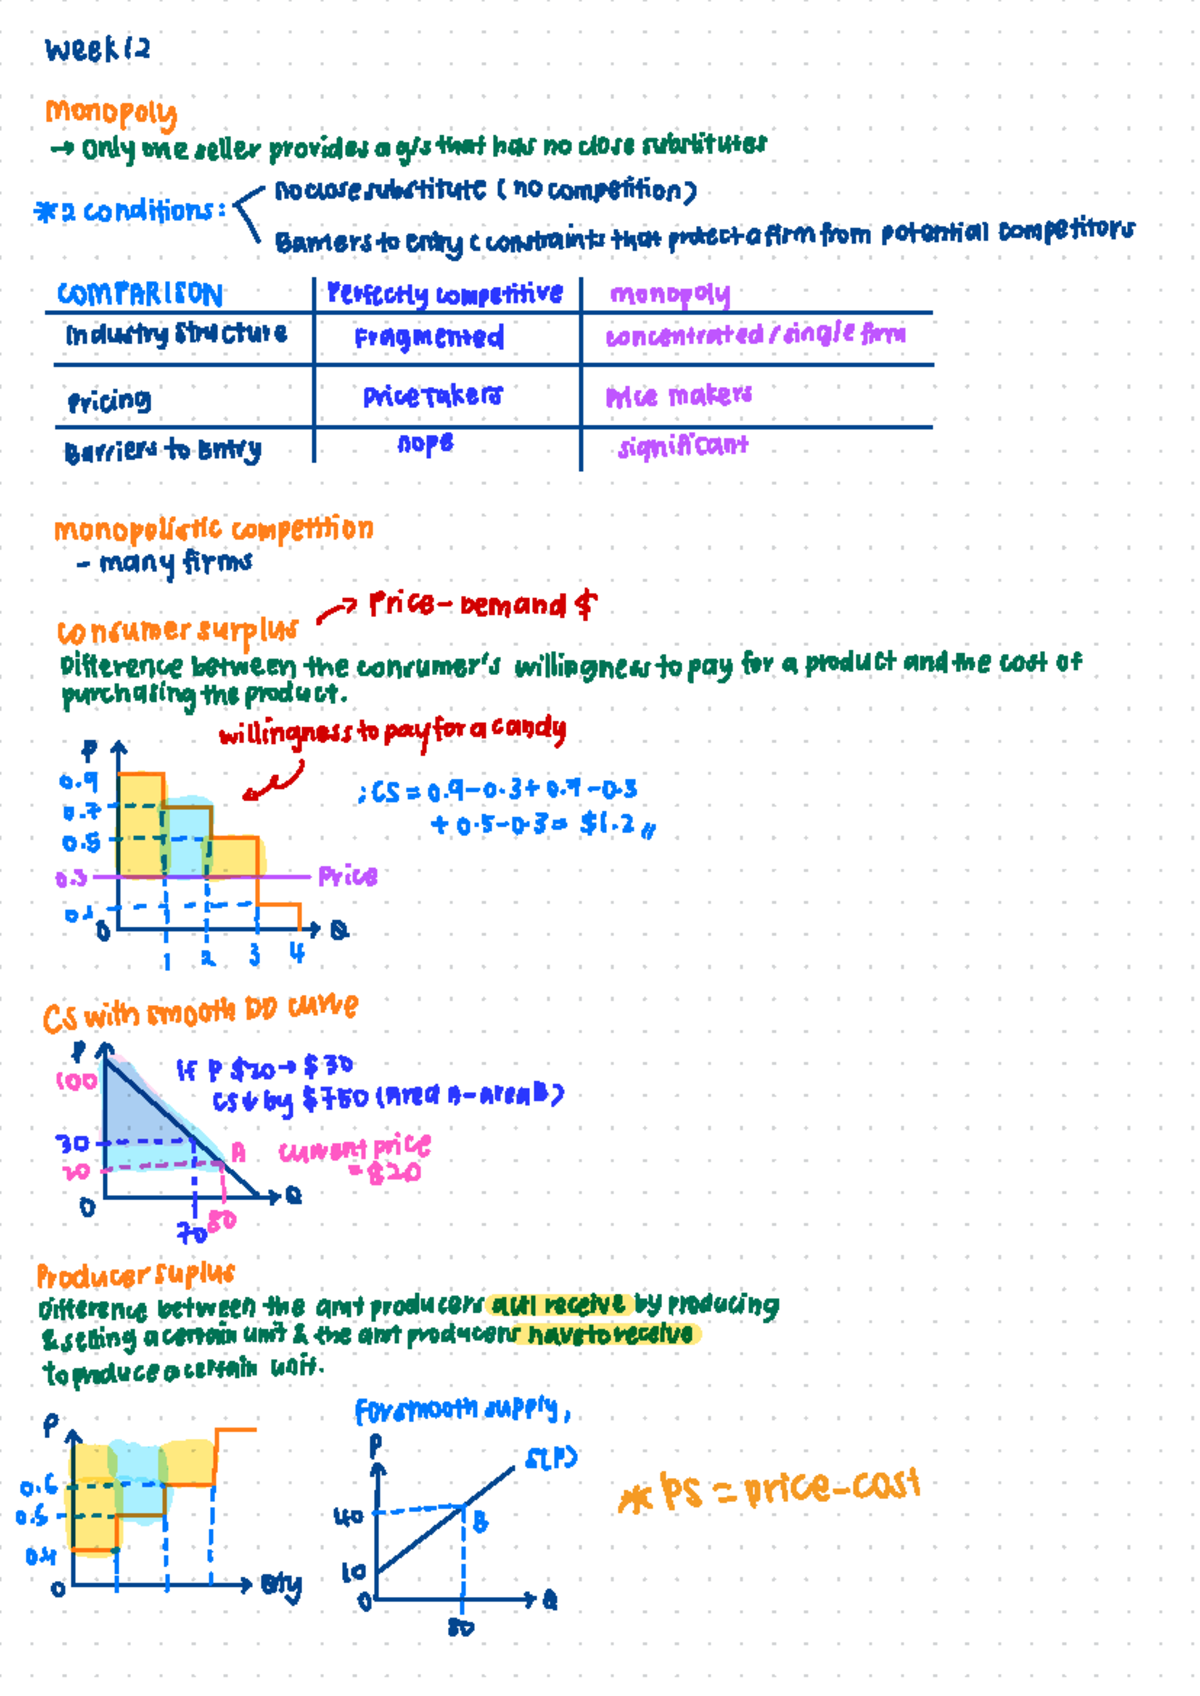 Week 12
Monopoly
→ Only one seller provides a g/s that has no close substitutes
* 2 conditions:
no close substitute (no competition)
Barriers to entry c constraints that protect a firm from potential competitors
COMPARISON Perfectly competitive monopoly
Industry structure Fragmented concentrated / single firm
Pricing Price Takers Price makers
Barriers to Entry nope significant
monopolistic competition
- many firms
→ Price - Demand $
consumer surplus
Difference between the consumer's willingness to pay for a product and the cost of
purchasing the product.
willingness to pay for a candy
P
0.9
0.7
0.5
0.3 Price
0.1
0 Q
1 2 3 4
; CS = 0.9-0.3+0.7-0.3
+ 0.5-0.3= $1.2 //
CS with smooth DD curve
P
100
30
20
0 Q
70 80
A
If P $20 → $30
CS↓ by $750 (Area A-area B)
current price
= $20
Producer suplus
Difference between the amt producers actl receive by producing
& selling a certain unit & the amt producers have to receive
to produce a certain unit.
P
0.6
0.5
0.4
0 Qty
For smooth supply,
P S(P)
40 B
10
0 Q
80
* PS = price-cost